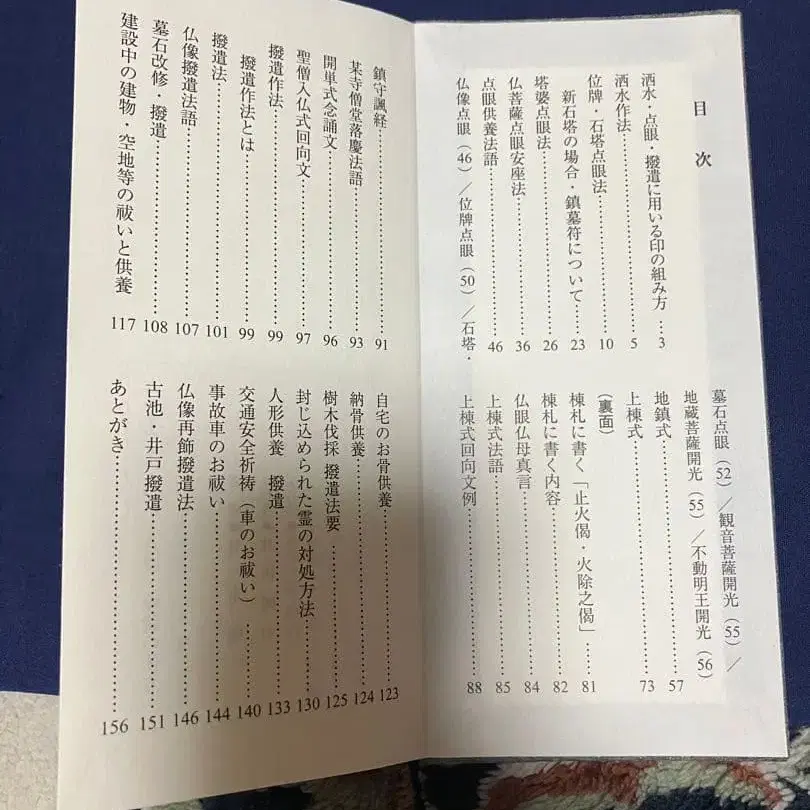 目次
洒水・点眼・撥遣に用いる印の組み方…3
洒水作法……………5
位牌・石塔点眼法……………10
新石塔の場合・鎮墓符について……23
塔婆点眼法……………26
仏菩薩点眼安座法……………36
点眼供養法語……………46
仏像点眼（46）／位牌点眼（50）／石塔・
墓石点眼（52）／観音菩薩開光（55）／
地蔵菩薩開光（55）／不動明王開光（56）
地鎮式……………57
上棟式……………73
（裏面）
棟札に書く「止火偈・火除之偈」……81
棟札に書く内容……………82
仏眼仏母真言……………84
上棟式法語……………85
上棟式回向文例……………88
鎮守諷経……………91
某寺僧堂落慶法語……………93
開単式念誦文……………96
聖僧入仏式回向文……………97
撥遣作法……………99
撥遣作法とは……………99
撥遣法……………101
仏像撥遣法語……………107
墓石改修・撥遣……………108
建設中の建物・空地等の祓いと供養 117
自宅のお骨供養……………123
納骨供養……………124
樹木伐採 撥遣法要……………125
封じ込められた霊の対処方法……130
人形供養 撥遣……………133
交通安全祈祷（車のお祓い）……140
事故車のお祓い……………144
仏像再飾撥遣法……………146
古池・井戸撥遣……………151
あとがき……………156